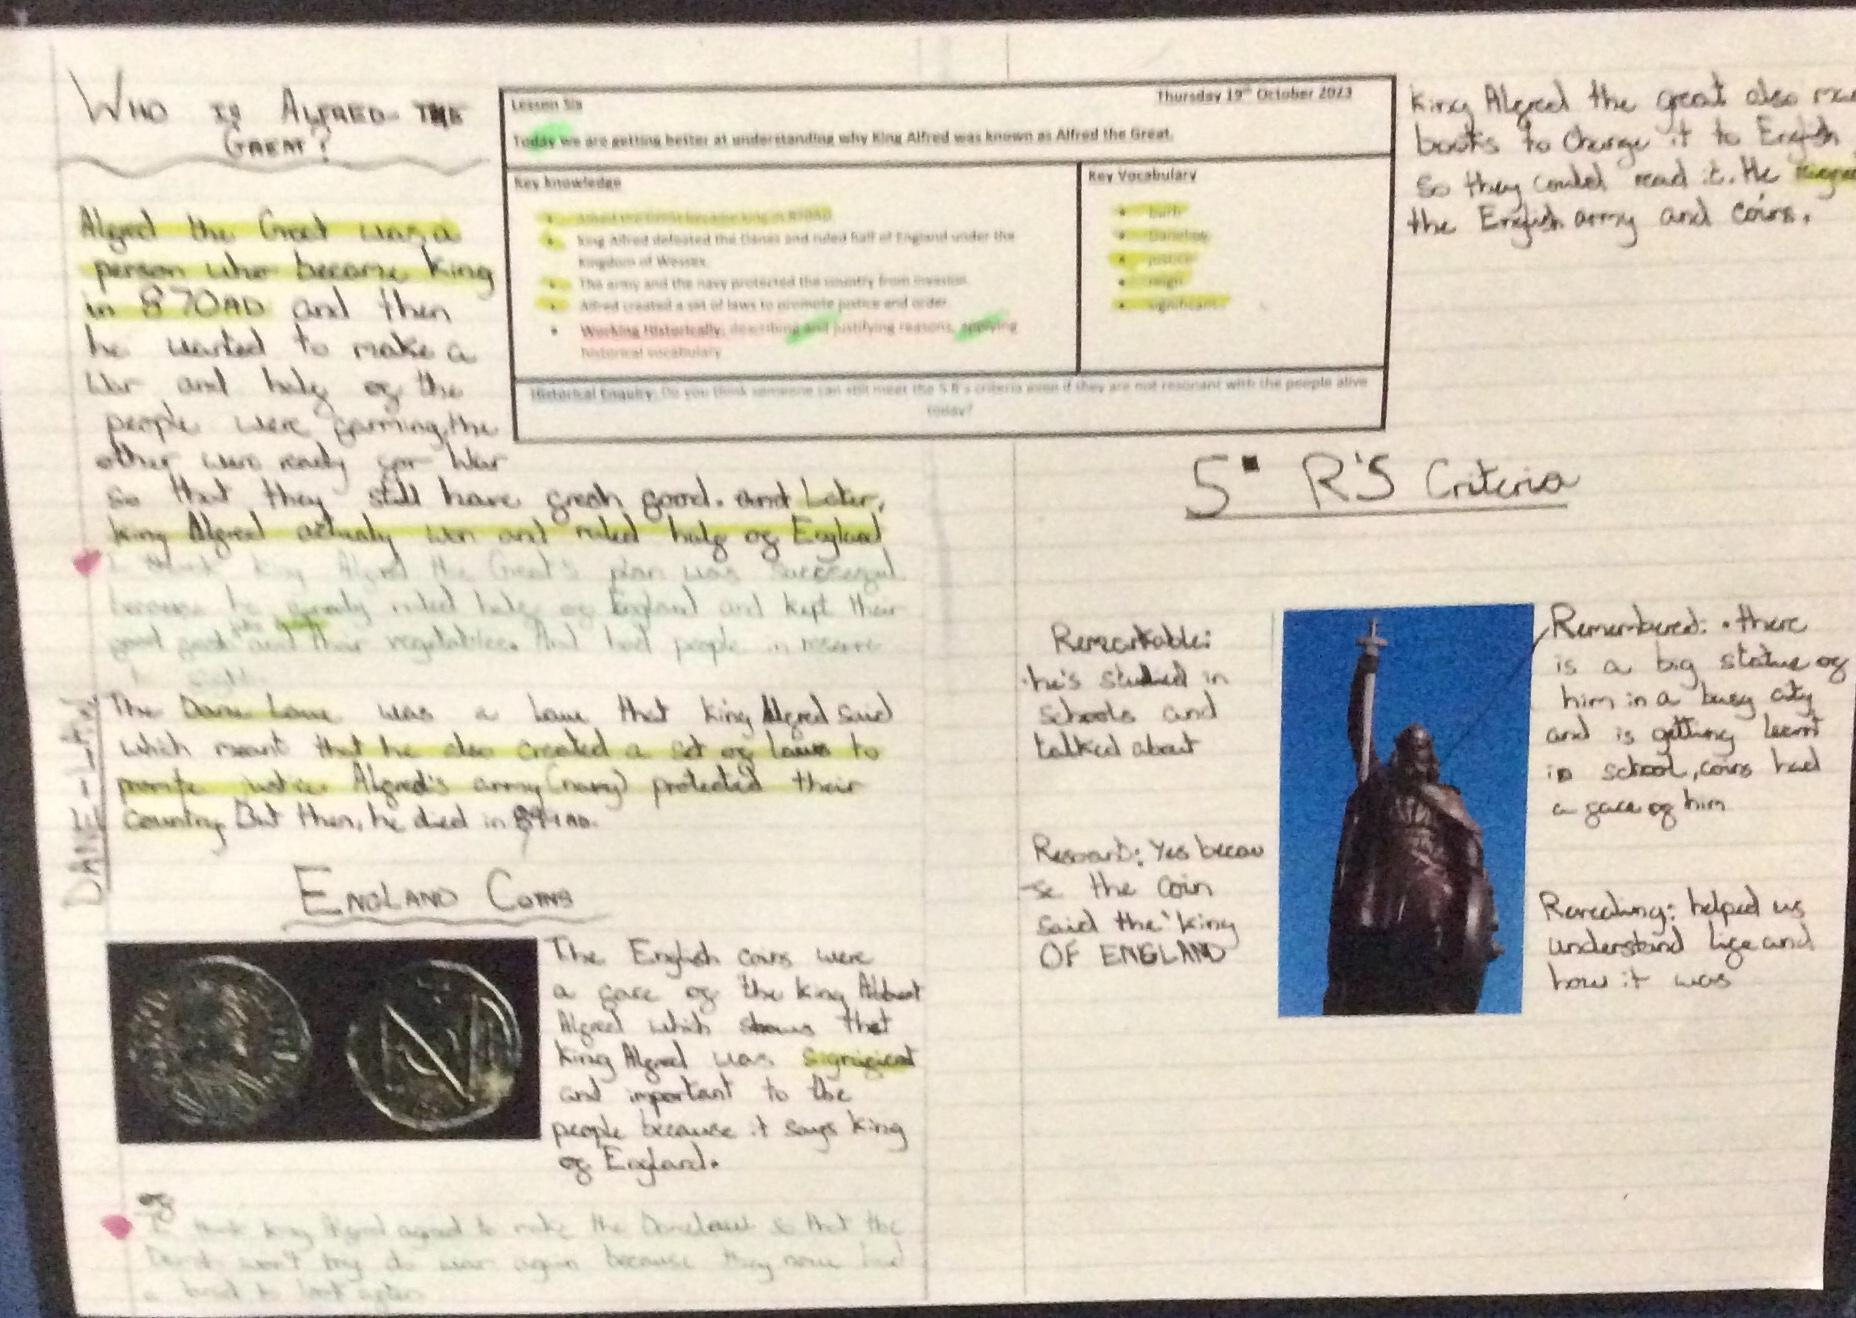 WHO IS ALFRED THE
GREAT?
Lesson Six
Thursday 19th October 2023
Today we are getting better at understanding why King Alfred was known as Alfred the Great.
Key knowledge
Alfred the Great became king in 870AD
King Alfred defeated the Danes and ruled half of England under the
Kingdom of Wessex.
The army and the navy protected the country from invasion.
Alfred created a set of laws to promote justice and order.
Working Historically: describing and justifying reasons, applying
historical vocabulary
Key Vocabulary
burh
Danelaw
justice
reign
significant
Historical Enquiry: Do you think someone can still meet the 5 R's criteria even if they are not resonant with the people alive
today?
Alfred the Great was a
person who became King
in 870AD and then
he wanted to make a
War and half of the
people were farming, the
other were ready for War
so that they still have fresh food. and Later,
king Alfred actually won and ruled half of England
I think king Alfred the Great's plan was successful
because he ruled half of England and kept their
food and their vegetables. And had people in reserve
The Dane Law was a law that king Alfred said
which meant that he also created a set of laws to
justice. Alfred's army (navy) protected their
Country. But then, he died in AD.
DANE-LAW
ENGLAND COINS
The English coins were
a face of the king
Alfred which shows that
king Alfred was significant
and important to the
people because it says king
of England.
of
I think king Alfred agreed to make the Danelaw so that the
won't try do war again because they now had
a to look after
King Alfred the great also
books to change it to English
so they could read it. He
the English army and coins.
5 R'S Criteria
Remarkable:
he's studied in
schools and
talked about
Yes becau
-se the coin
said the "king
OF ENGLAND
Remembered: • there
is a big statue of
him in a busy city
and is getting learnt
in school, coins had
a face of him
Revealing: helped us
understand life and
how it was